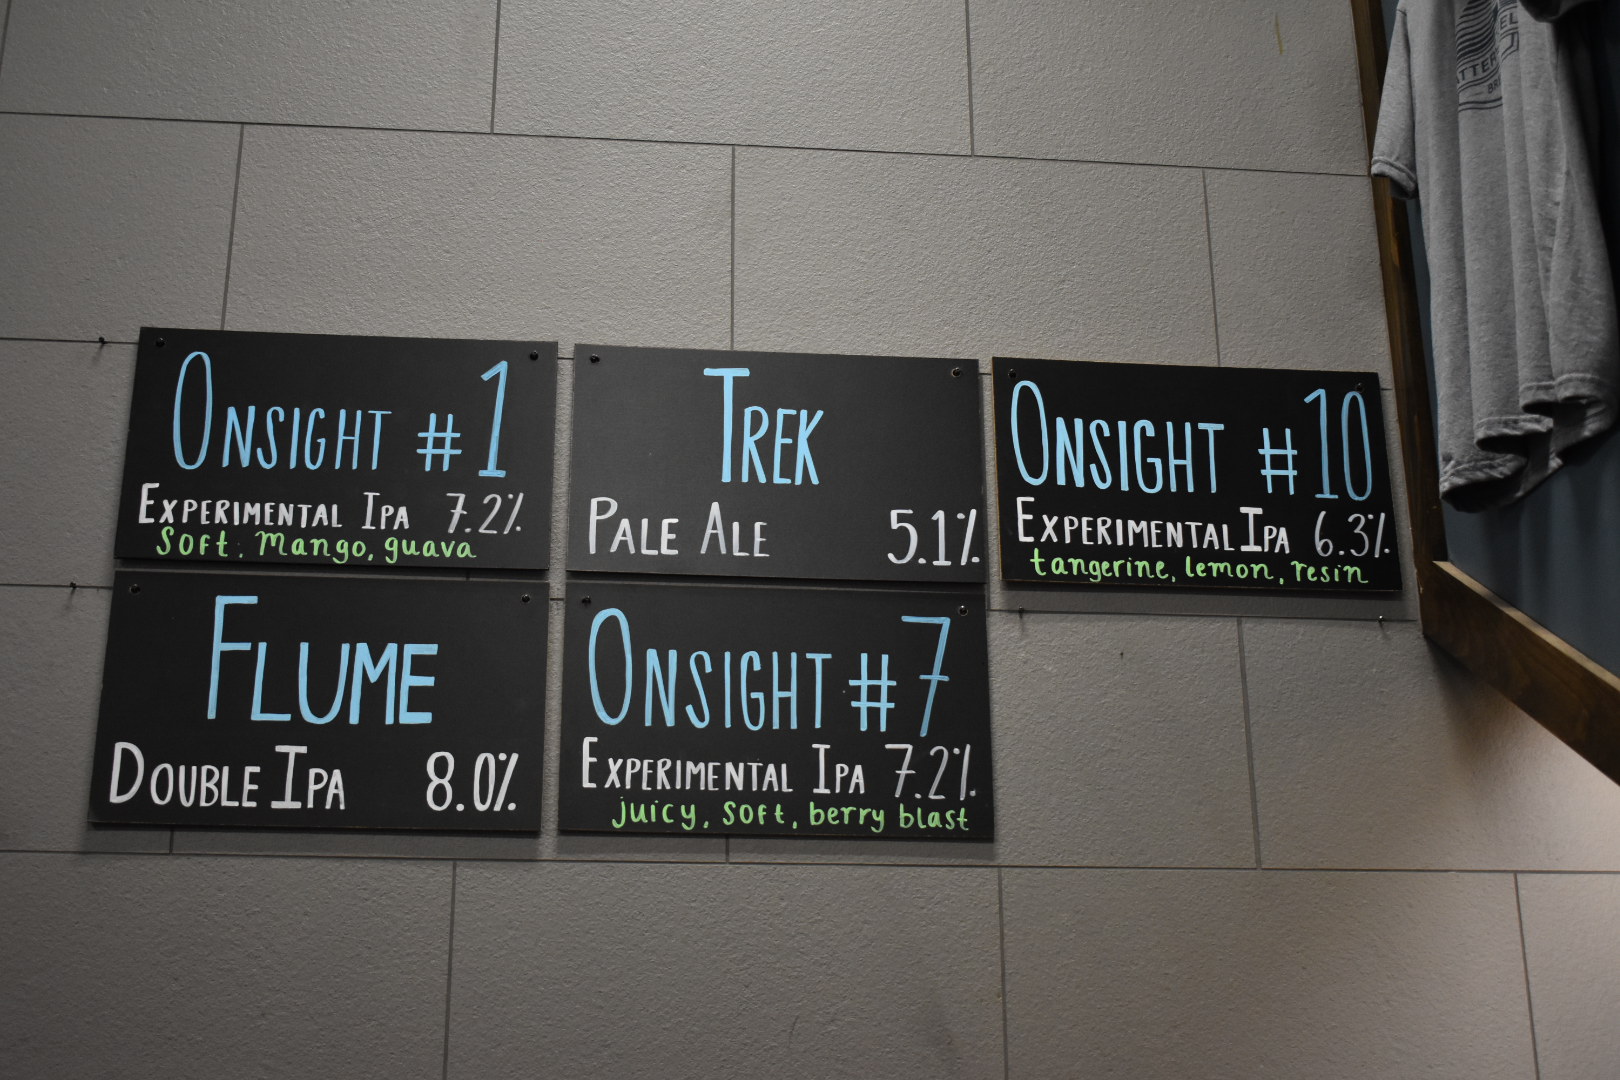 ONSIGHT #1
EXPERIMENTAL IPA 7.2%
Soft, Mango, guava
TREK
PALE ALE 5.1%
ONSIGHT #10
EXPERIMENTAL IPA 6.3%
tangerine, lemon, resin
FLUME
DOUBLE IPA 8.0%
ONSIGHT #7
EXPERIMENTAL IPA 7.2%
juicy, soft, berry blast